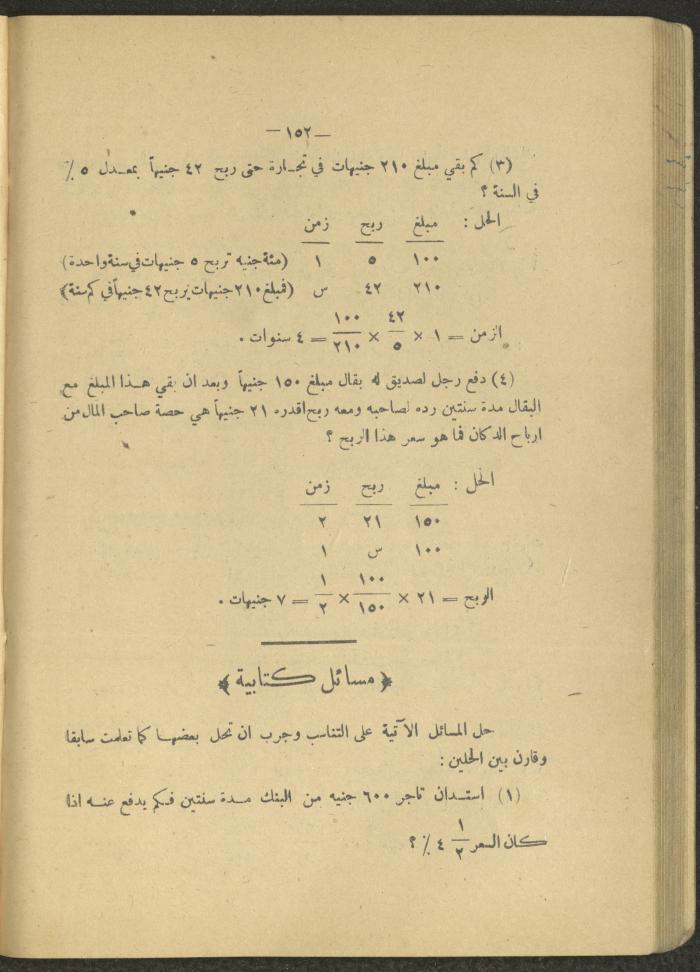 — ١٥٢ —
(٣) كم بقي مبلغ ٢١٠ جنيهات في تجـارة حتى ربح ٤٢ جنيهاً بمعـدل ٥ ٪
في السنة ؟
الحل : مبلغ ربح زمن
١٠٠ ٥ ١ (مئة جنيه تربح ٥ جنيهات في سنة واحدة)
٢١٠ ٤٢ س (فمبلغ ٢١٠ جنيهات يربح ٤٢ جنيهاً في كم سنة)
الزمن = ١ × ٤٢/٥ × ١٠٠/٢١٠ = ٤ سنوات .
(٤) دفع رجل لصديق له بقال مبلغ ١٥٠ جنيهاً وبعد ان بقي هـذا المبلغ مع
البقال مدة سنتين رده لصاحبه ومعه ربح اقدره ٢١ جنيهاً هي حصة صاحب المال من
ارباح الدكان فما هو سعر هذا الربح ؟
الحل : مبلغ ربح زمن
١٥٠ ٢١ ٢
١٠٠ س ١
الربح = ٢١ × ١٠٠/١٥٠ × ١/٢ = ٧ جنيهات .
﴿ مسائل كتابية ﴾
حل المسائل الآتية على التناسب وجرب ان تحل بعضهـا كما تعلمت سابقا
وقارن بين الحلين :
(١) استـدان تاجر ٦٠٠ جنيه من البنك مـدة سنتين فـكم يدفع عنـه اذا
كان السعر ١/٢ ٤ ٪ ؟